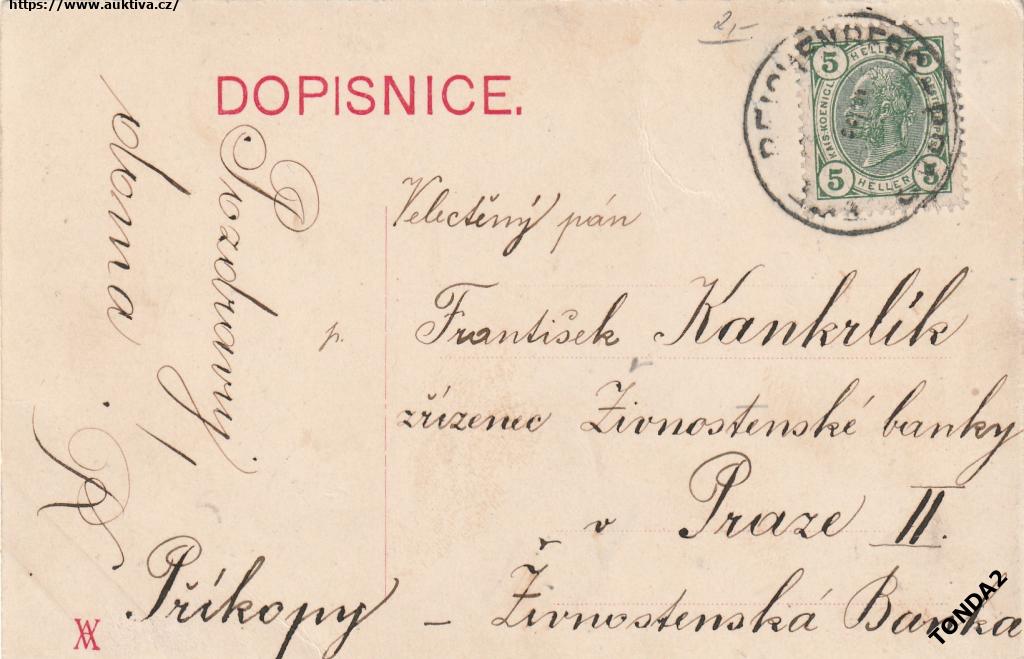 https://www.auktiva.cz/
2,-
DOPISNICE.
REICHENBERG
5 HELLER 5
KAIS. KOENIGL.
5 HELLER 5
Velectěný pán
p.
František Kankrlík
zřízenec Živnostenské banky
v Praze II.
Příkopy – Živnostenská Banka
Pozdravuj
doma
TONDA2